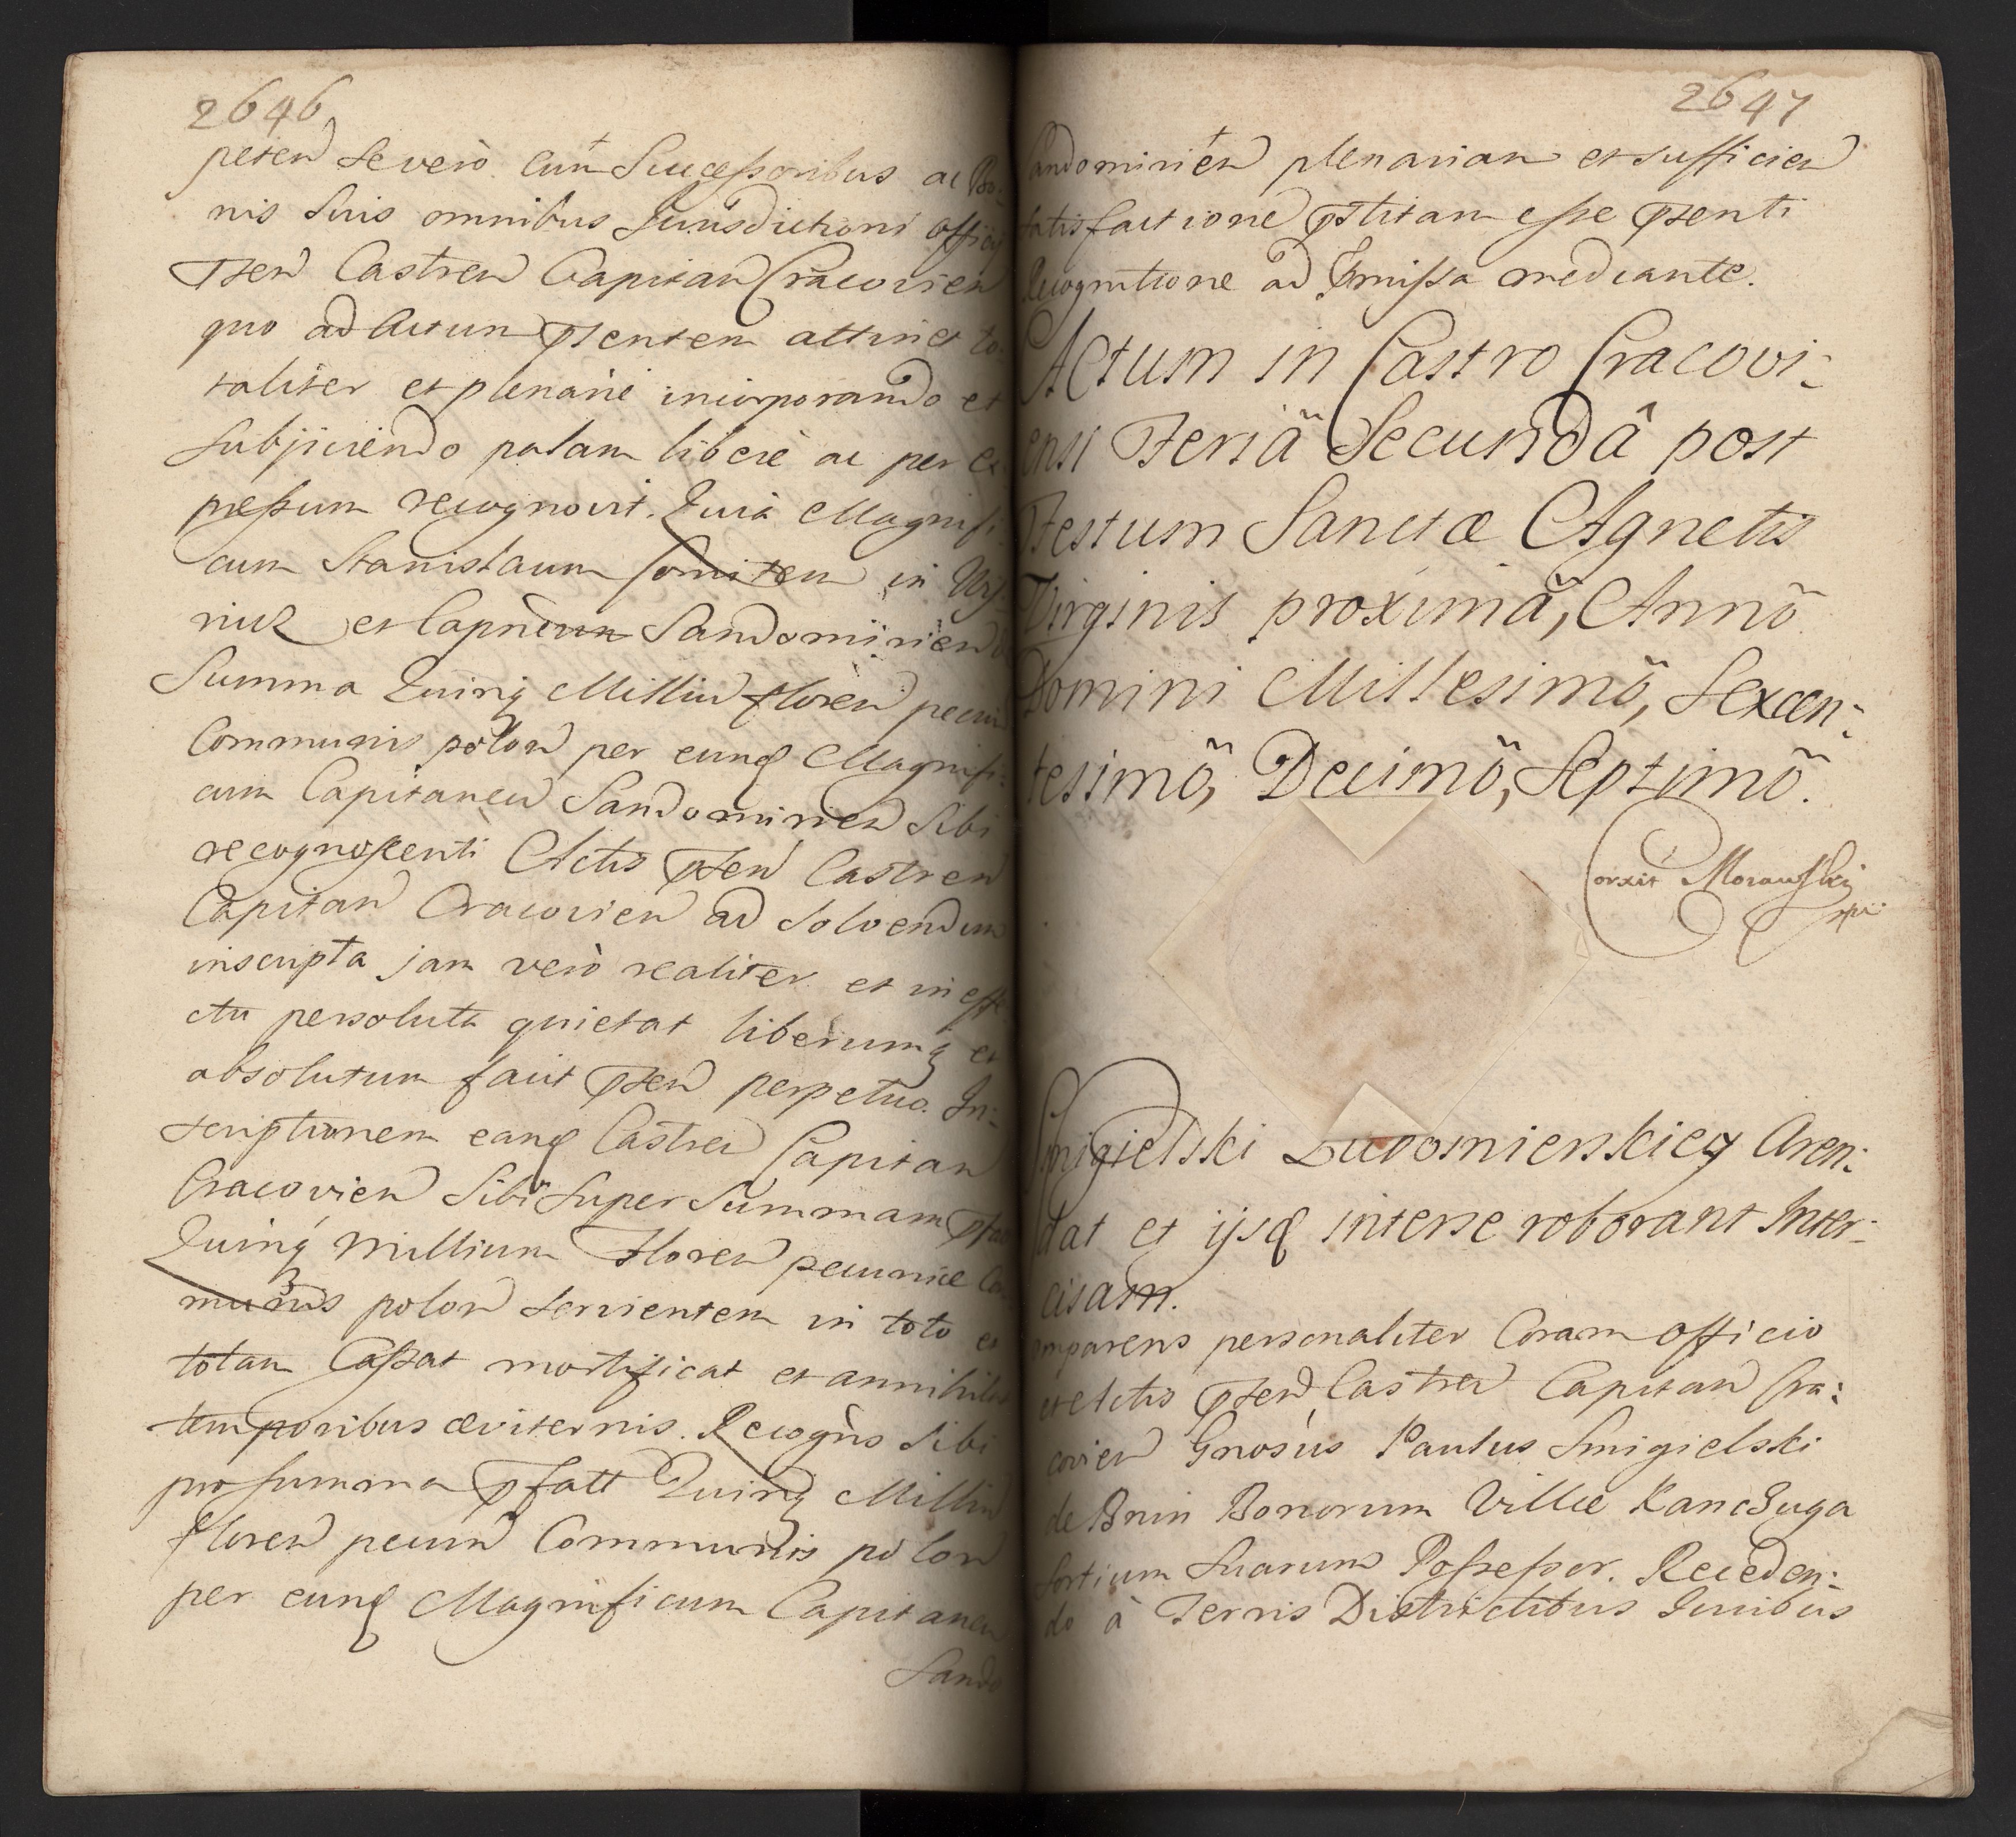 2646
peten se vero cum Successoribus ac Bo-
nis suis omnibus Jurisdictioni officij
pnsen Castren Capitan Cracovien
quo ad Actum pnsentem attinet to-
taliter et plenariè incorporando et
subjiciendo palam liberè ac per ex
pressum recognovit. Quia Magnifi-
cum Stanislaum Comitem in
et Capneum Sandomirien
Summa Quinq Milliu floren pecun
Communis polon per eund Magnifi-
cum Capitaneu Sandomirien Sibi
recognoscenti Actis pnsen Castren
Capitan Cracovien ad solvendum
inscripta jam verò realiter et in effe
ctu persoluta quietat liberumq et
absolutum facit pnsen perpetuo. In-
scriptionem eand Castren Capitan
Cracovien Sibi super Summam
Quinq Millium Floren pecuniæ Com
munis polon servientem in toto et
totam Cassat mortificat et annihilat
temporibus æviternis. Recogns Sibi
pro summa pfatt Quinq Milliu
floren pecun Communis polon
per eund Magnificum Capitaneu
Sando
2647
Sandomirien plenariam et sufficien
satisfactione pstitam esse pnsenti
Recognitione ad pmissa mediante.
Actum in Castro Cracovi-
ensi Feriâ Secundâ post
Festum Sanctæ Agnetis
Virginis proximâ, Annô
Domini Millesimô, Sexcen-
tesimô, Decimô, Septimô.
Corxit Morawski
mpr
Smigielski Aren-
dat et ijsd inter se roborant Inter-
cisam.
Comparens personaliter Coram officio
et Actis pnsen Castren Capitan Cra-
covien Gnosus Paulus Smigielski
de Bnin Bonorum Villæ Kanczuga
Sortium Suarum Possessor. Receden-
do à Terris Districtibus Juribus